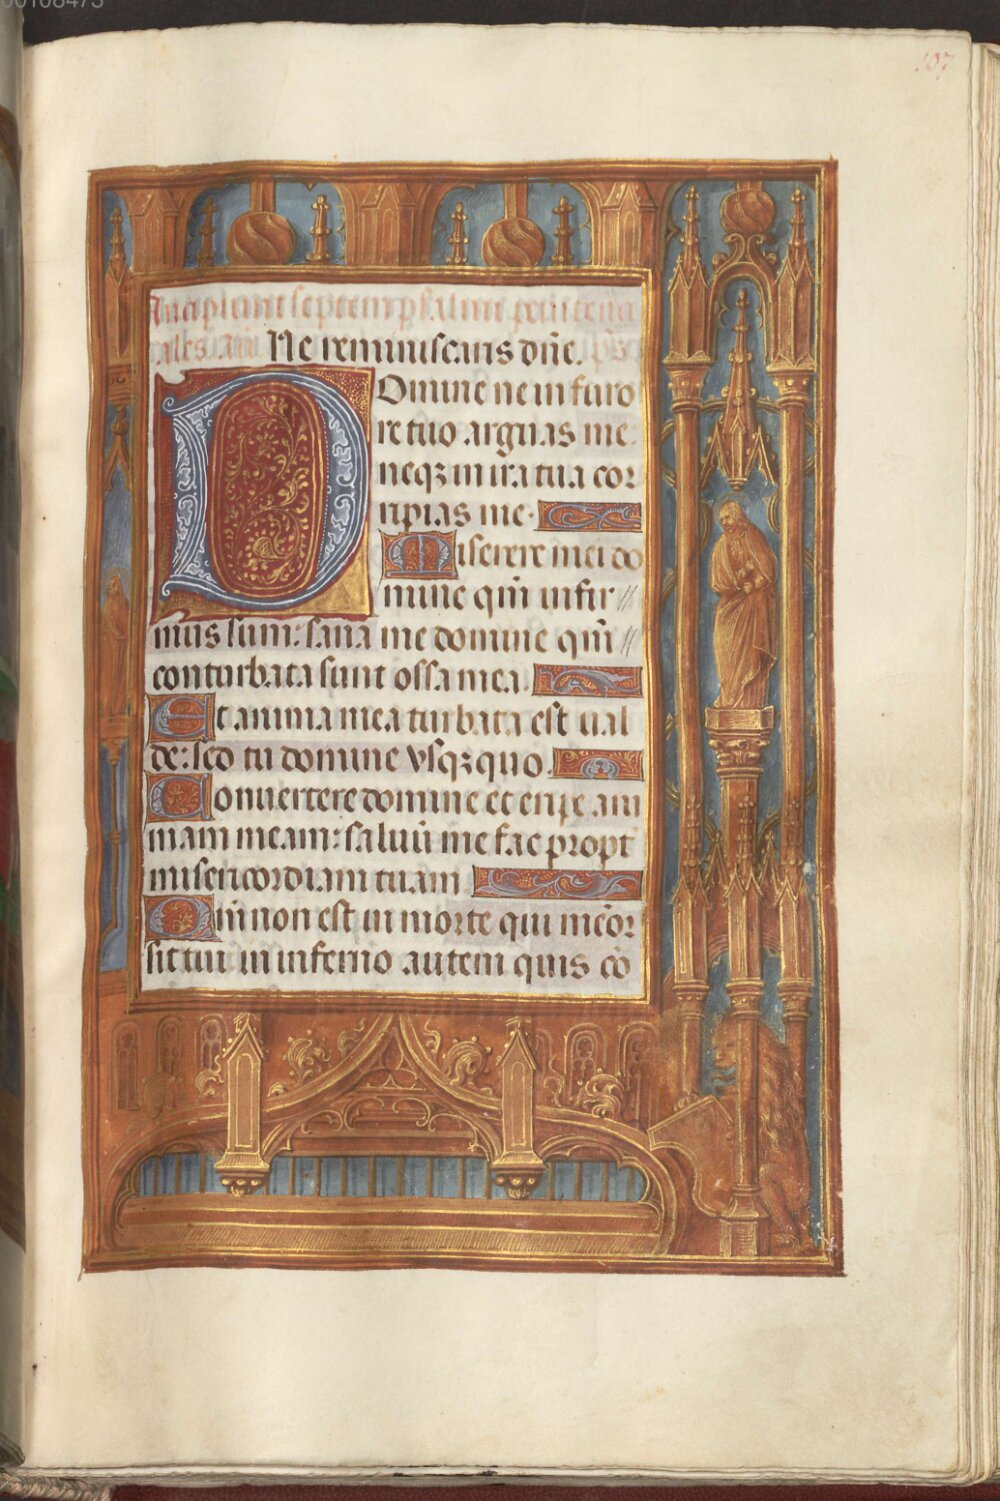 00108473
107
Incipiunt septem psalmi penitenci
ales. añ Ne reminiscaris dñe.
Domine ne in furo
re tuo arguas me
neqz in ira tua cor
ripias me.
Miserere mei do
mine qm̃ infir
mus sum: sana me domine qm̃
conturbata sunt ossa mea.
Et anima mea turbata est ual
de: sed tu domine vsqz quo.
Conuertere domine et eripe ani
mam meam: saluũ me fac propt
misericordiam tuam
Qm̃ non est in morte qui mẽor
sit tui: in inferno autem quis cõ